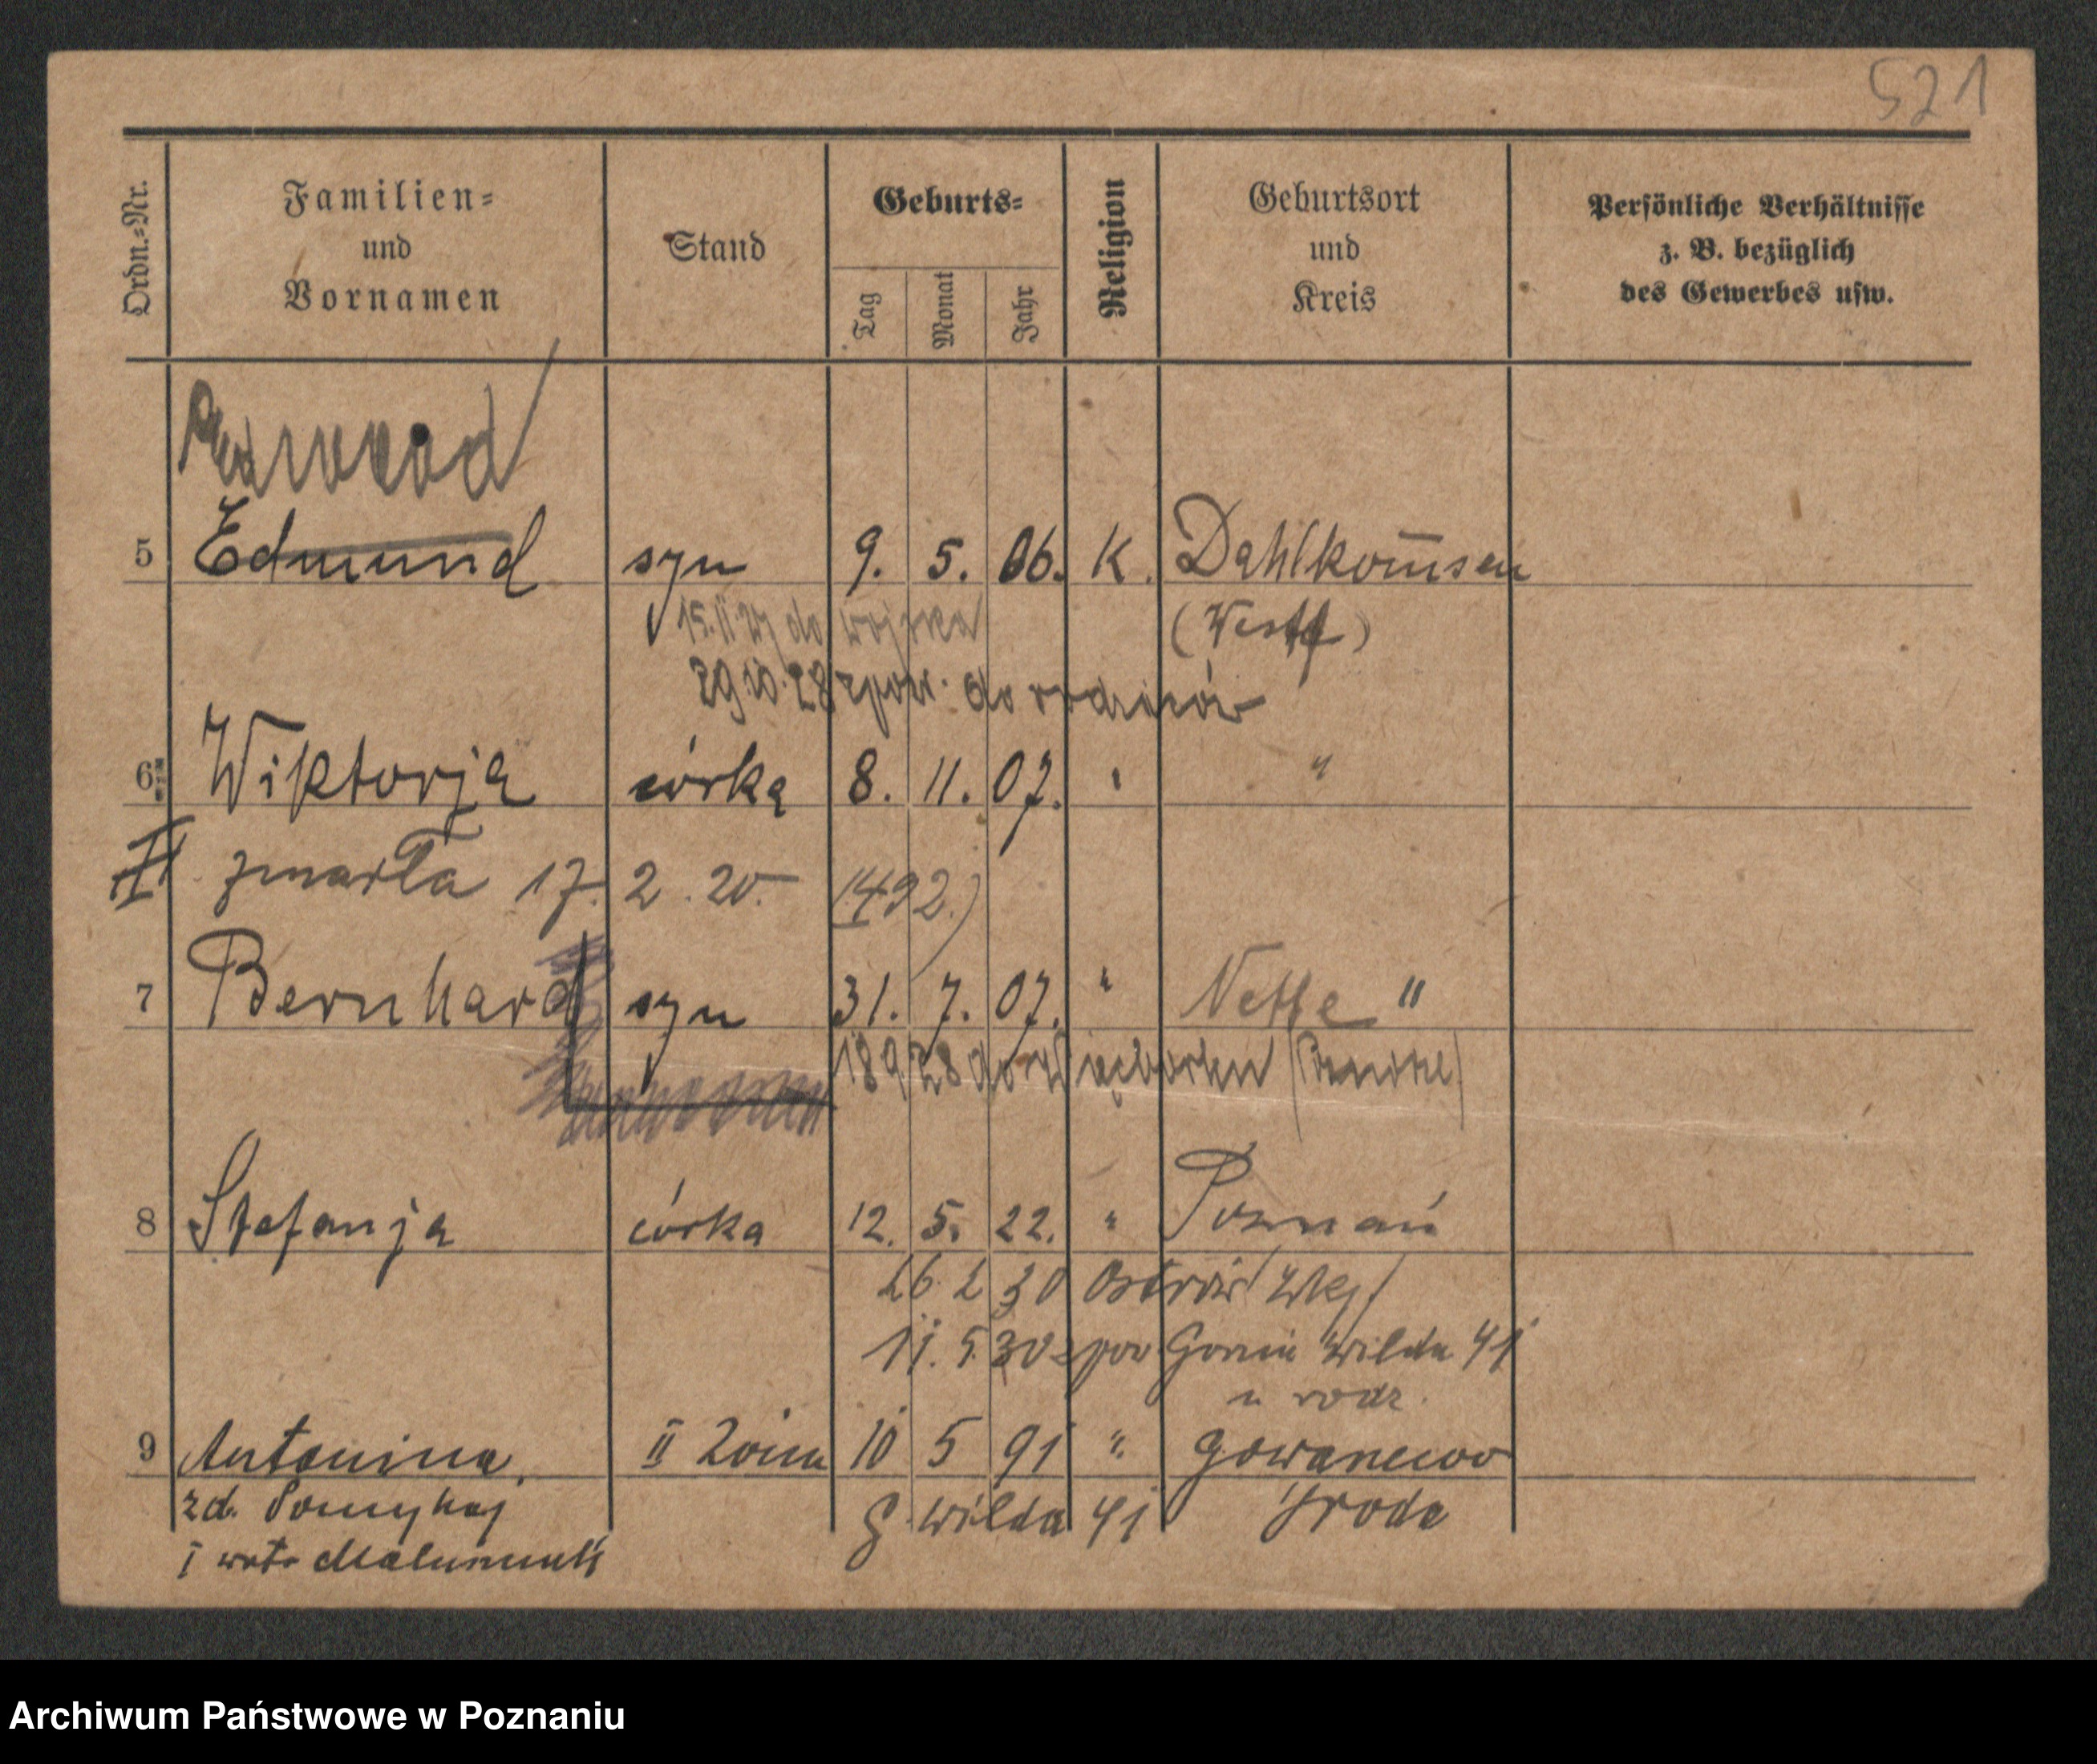 521
Ordn.=Nr.
Familien=
und
Vornamen
Stand
Geburts=
Tag
Monat
Jahr
Religion
Geburtsort
und
Kreis
Persönliche Verhältnisse
z. B. bezüglich
des Gewerbes usw.
5 Edmund syn 9. 5. 06. K. Dahlkom̅sen
15.II.27 do wojska (Westf)
29 10. 28 zpow. do rodziców
6 Wiktorja córka 8. 11. 07. " "
II zmarła 17. 2. 20. 1492.)
7 Bernhard syn 31. 7. 07. " Nette "
18 9 28 do
8 Stefanja córka 12. 5. 22. " Poznań
26 2 30 Ostrów Wlkp
11. 5 30 zpow Górna Wilda 41
u rodz.
9 Antonina. II żona 10 5 91 " Gowarzewo
zd. Pomykaj G. Wilda 41 Środa
I voto
Archiwum Państwowe w Poznaniu